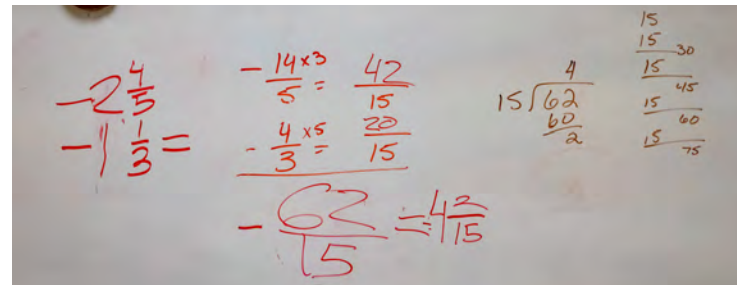 -2 4/5
-1 1/3 =
- 14/5 ×3 = 42/15
- 4/3 ×5 = 20/15
- 62/15 = 4 2/15
4
15)62
60
2
15
15 30
15 45
15 60
15 75